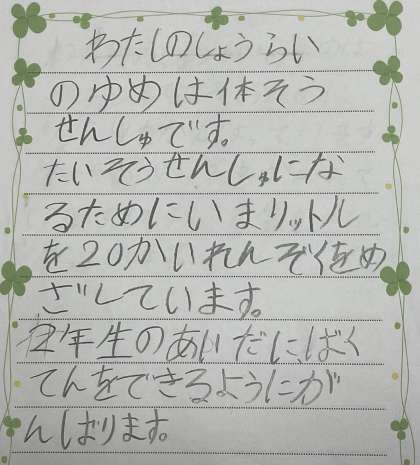 わたしのしょうらい
のゆめは体そう
せんしゅです。
たいそうせんしゅにな
るためにいまリットル
を20かいれんぞくをめ
ざしています。
2年生のあいだに、ばく
てんをできるようにが
んばります。